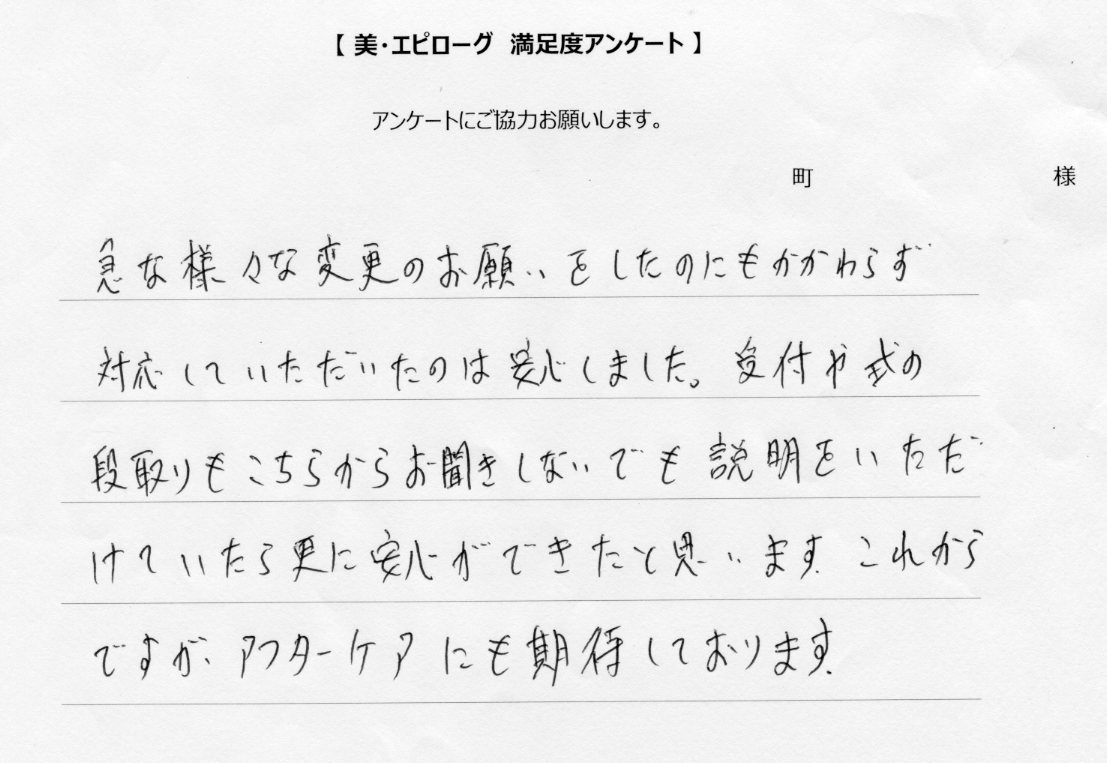 【 美・エピローグ 満足度アンケート 】
アンケートにご協力お願いします。
町 様
急な様々な変更のお願いをしたのにもかかわらず
対応していただいたのは安心しました。受付や式の
段取りもこちらからお聞きしないでも説明をいただ
けていたら更に安心ができたと思います。これから
ですが、アフターケアにも期待しております。